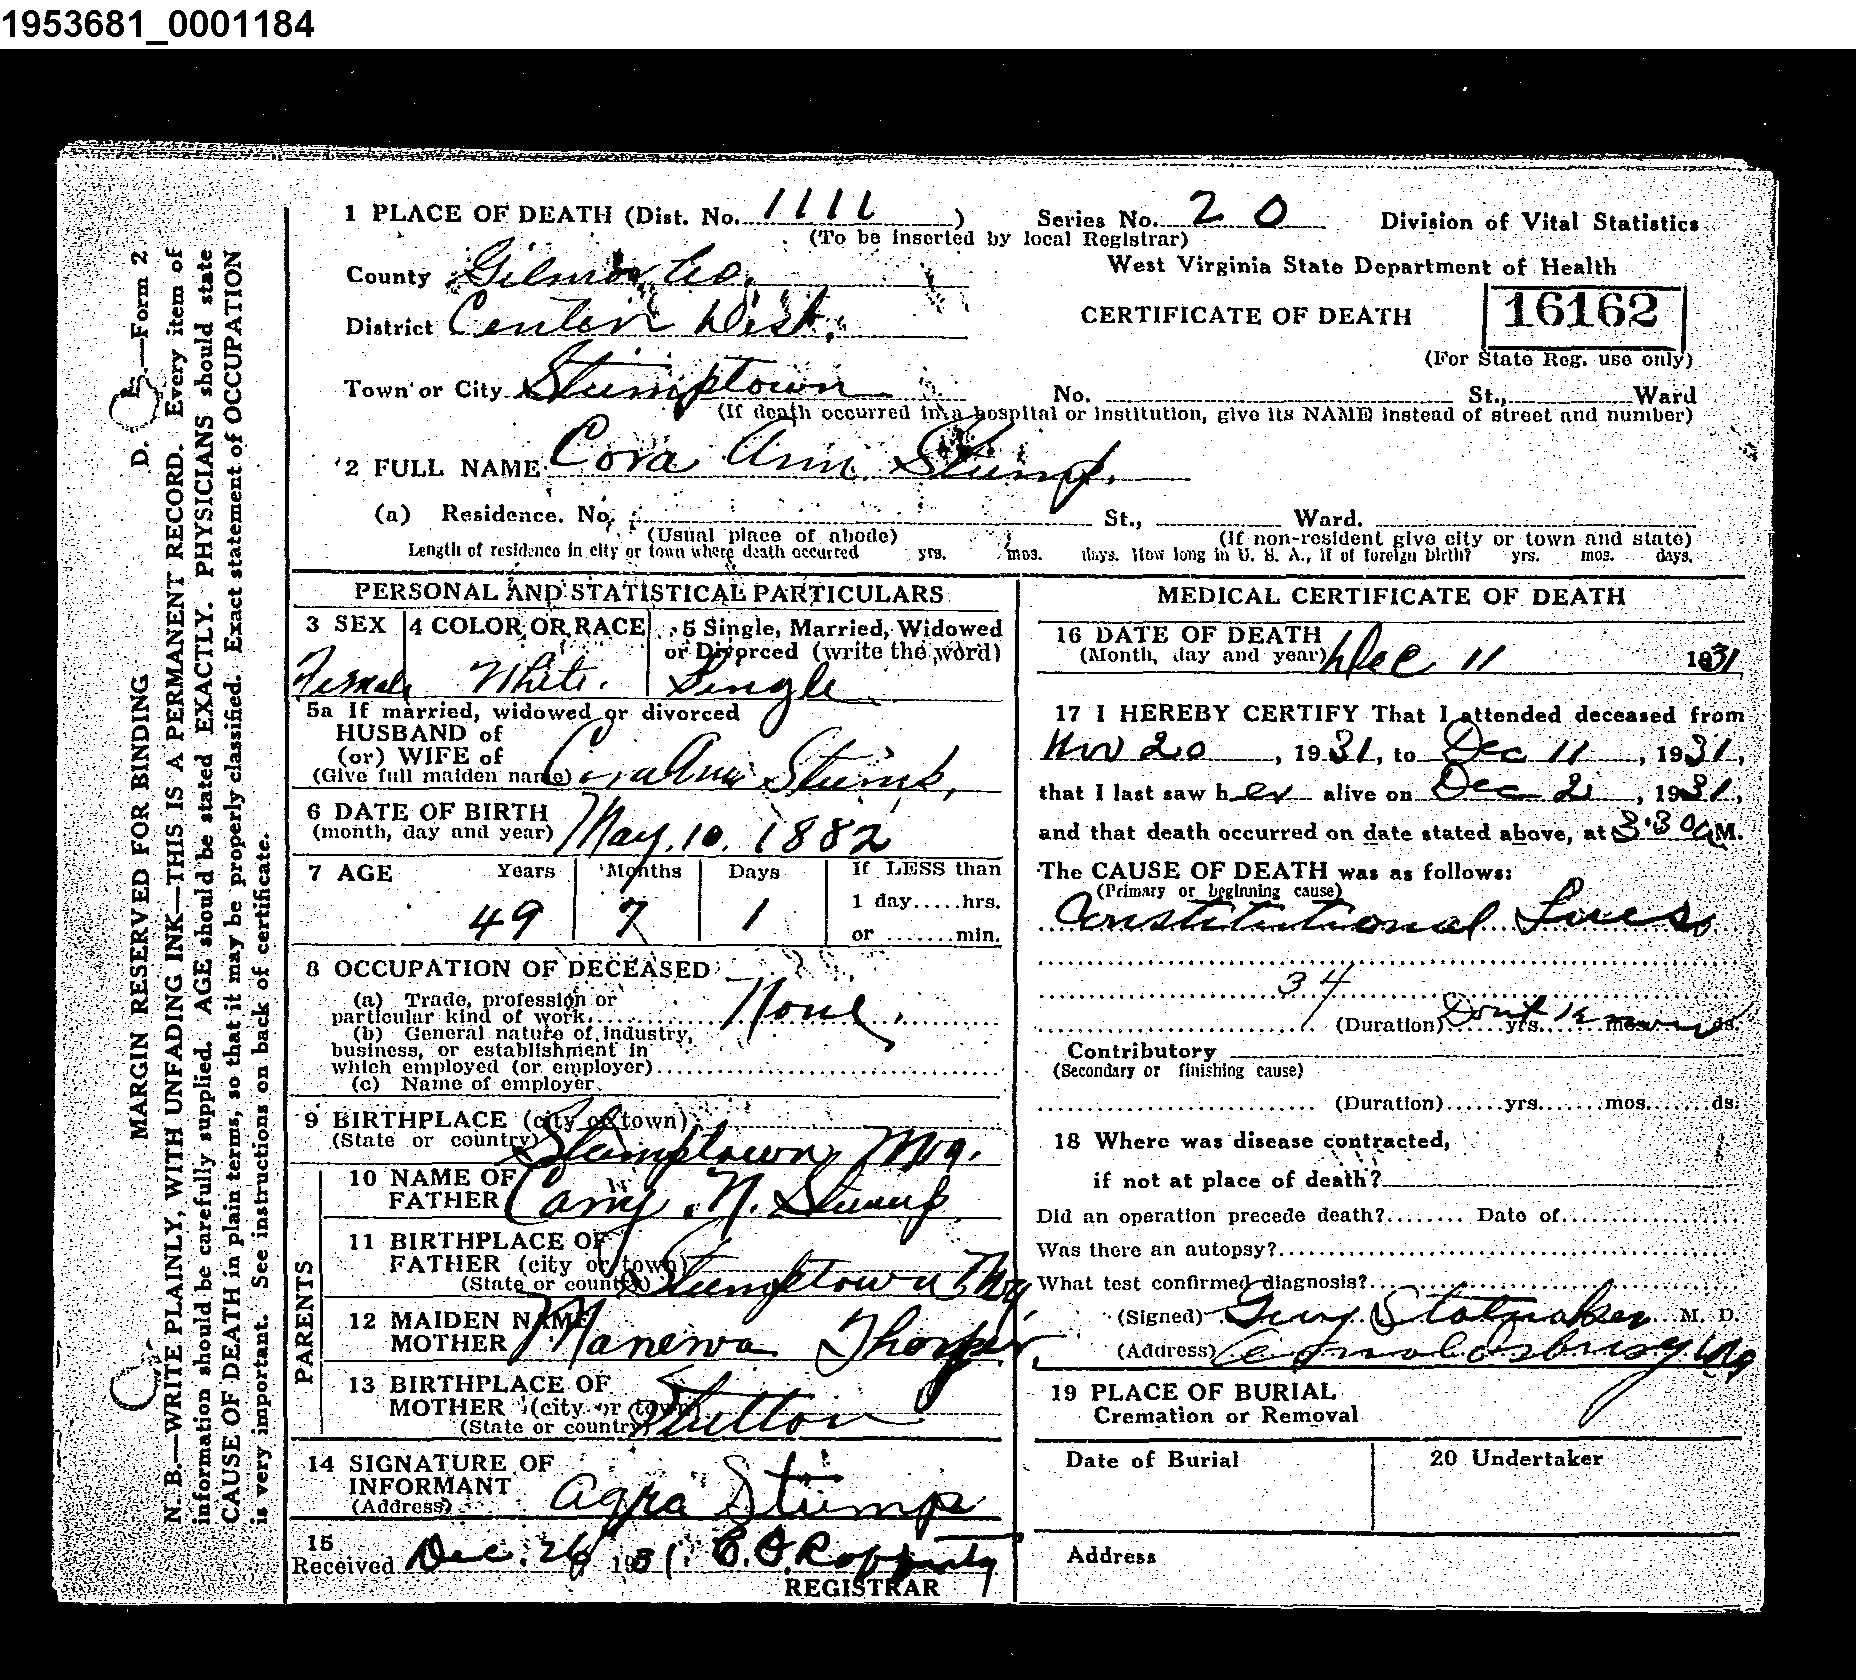 1953681_0001184
1 PLACE OF DEATH (Dist. No. 1111 )
Series No. 20
Division of Vital Statistics
(To be inserted by local Registrar)
County Gilmer Co.
West Virginia State Department of Health
District Center Dist.
CERTIFICATE OF DEATH
16162
(For State Reg. use only)
Town or City Stumptown
No. St., Ward
(If death occurred in a hospital or institution, give its NAME instead of street and number)
2 FULL NAME Cora Ann Stump.
(a) Residence. No. St., Ward.
(Usual place of abode)
(If non-resident give city or town and state)
Length of residence in city or town where death occurred yrs. mos. days. How long in U. S. A., if of foreign birth? yrs. mos. days.
PERSONAL AND STATISTICAL PARTICULARS
3 SEX
Female
4 COLOR OR RACE
White.
5 Single, Married, Widowed
or Divorced (write the word)
Single
5a If married, widowed or divorced
HUSBAND of
(or) WIFE of
(Give full maiden name) Cora Ann Stump,
6 DATE OF BIRTH
(month, day and year) May. 10. 1882
7 AGE
Years
49
Months
7
Days
1
If LESS than
1 day.....hrs.
or .......min.
8 OCCUPATION OF DECEASED
(a) Trade, profession or
particular kind of work. None.
(b) General nature of industry,
business, or establishment in
which employed (or employer)
(c) Name of employer.
9 BIRTHPLACE (city or town)
(State or country) Stumptown,
PARENTS
10 NAME OF
FATHER N. Stump
11 BIRTHPLACE OF
FATHER (city or town)
(State or country) Stumptown
12 MAIDEN NAME
MOTHER
13 BIRTHPLACE OF
MOTHER (city or town)
(State or country)
14 SIGNATURE OF
INFORMANT Stump
(Address)
15
Received Dec. 26 1931.
REGISTRAR
MEDICAL CERTIFICATE OF DEATH
16 DATE OF DEATH
(Month, day and year) Dec 11 1931
17 I HEREBY CERTIFY That I attended deceased from
Nov 20, 1931, to Dec 11, 1931,
that I last saw her alive on Dec 2, 1931,
and that death occurred on date stated above, at 3:30 A M.
The CAUSE OF DEATH was as follows:
(Primary or beginning cause)
Constitutional Lues
34
(Duration) Dont know yrs. mos. ds.
Contributory
(Secondary or finishing cause)
(Duration)......yrs.......mos.......ds.
18 Where was disease contracted,
if not at place of death?
Did an operation precede death?........ Date of
Was there an autopsy?
What test confirmed diagnosis?
(Signed) Stalnaker M. D.
(Address)
19 PLACE OF BURIAL
Cremation or Removal
Date of Burial
20 Undertaker
Address
D. —Form 2
MARGIN RESERVED FOR BINDING
N. B.—WRITE PLAINLY, WITH UNFADING INK—THIS IS A PERMANENT RECORD. Every item of
information should be carefully supplied. AGE should be stated EXACTLY. PHYSICIANS should state
CAUSE OF DEATH in plain terms, so that it may be properly classified. Exact statement of OCCUPATION
is very important. See instructions on back of certificate.